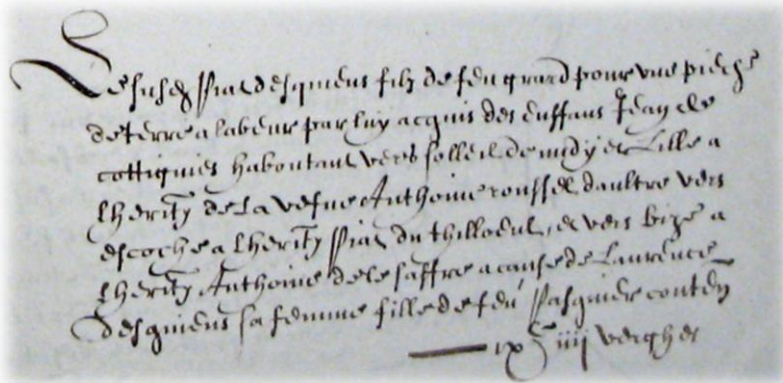 Piat desquiens filz de feu grard pour une pieche
de terre a labeur par luy acquis des enffans Jean de
cottignies haboutant vers solleil de midy et Lille a
lherit de la vefue Anthoine roussel daultre vers
escoche a lherit Piat du thilloeul et vers bize a
lherit Anthoine de le saffre a cause de Laurence
desquiens sa femme fille de feu Pasquier conten
ix iiij verghes